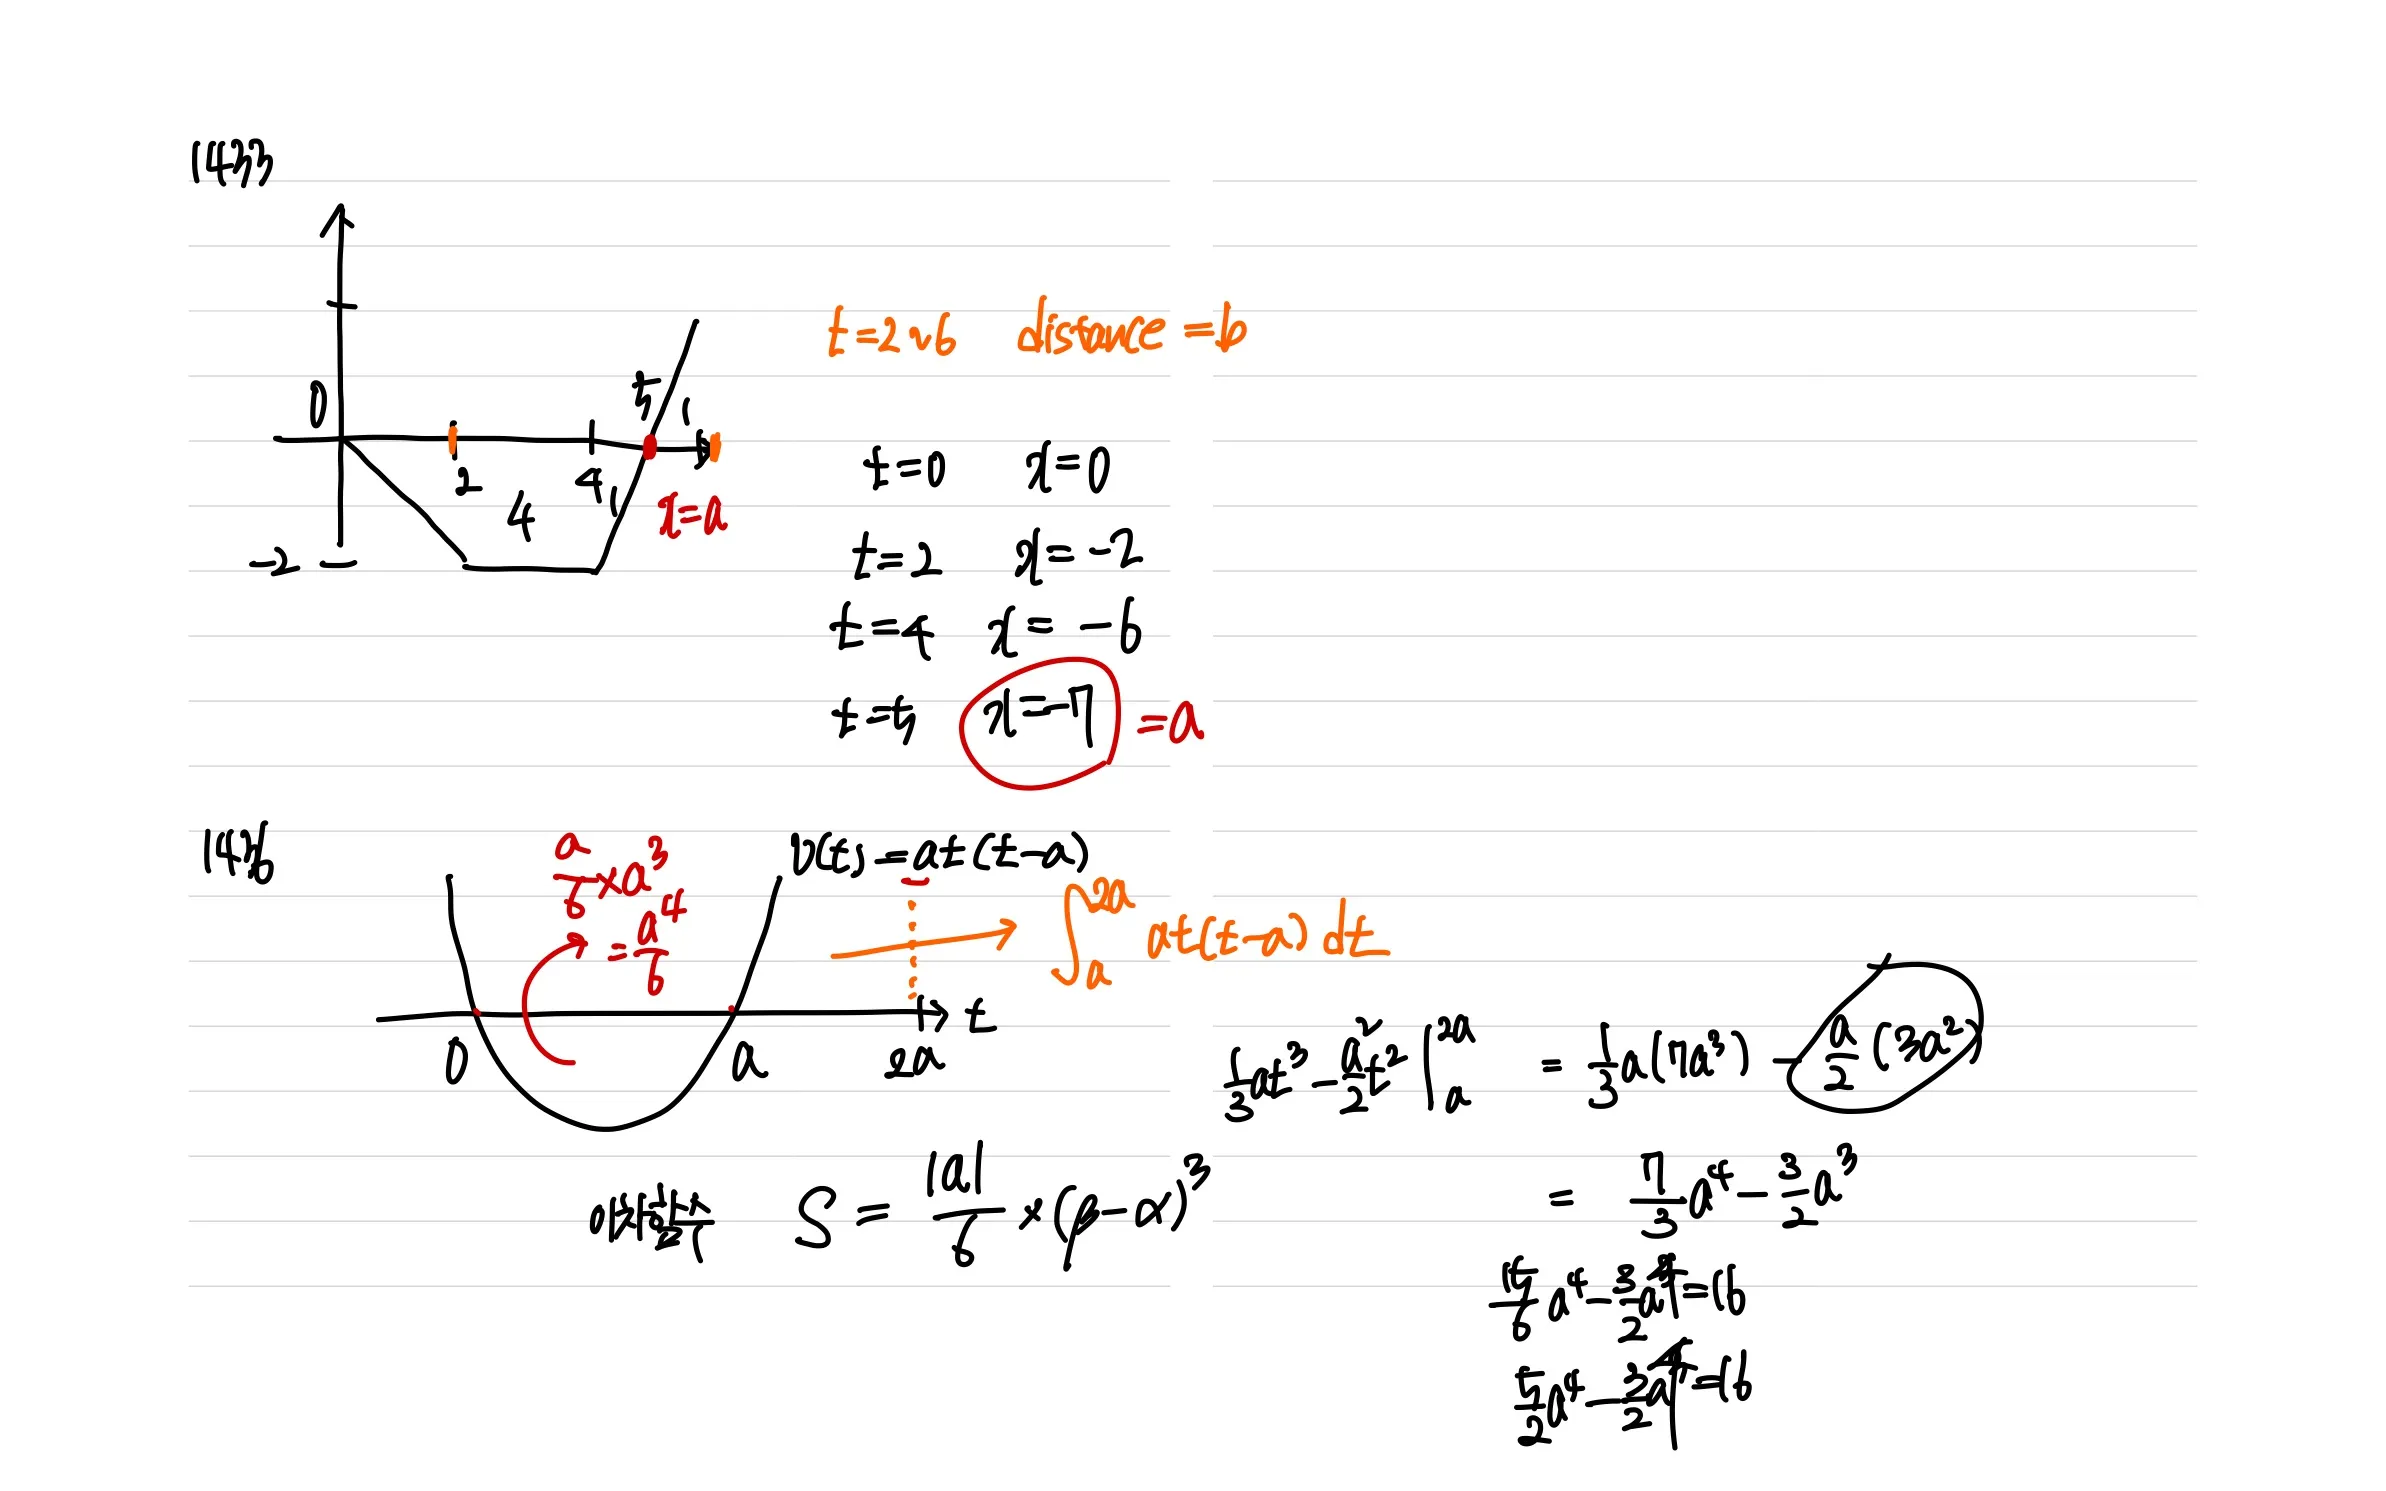 1433
0
2
4
5
1
4
1
-2
x=a
t=2~6 distance=b
t=0 x=0
t=2 x=-2
t=4 x=-6
t=5 x=-7 =a
1436
a/6×a³
=a⁴/6
v(t)=at(t-a)
∫ₐ²ᵃ at(t-a) dt
0
a
2a
t
1/3at³-a²/2t² |ₐ²ᵃ = 1/3a(7a³)-a²/2(3a²)
= 7/3a⁴-3/2a³
S=|a|/6×(β-α)³
15/6a⁴-3/2a⁴=16
5/2a⁴-3/2a⁴=16